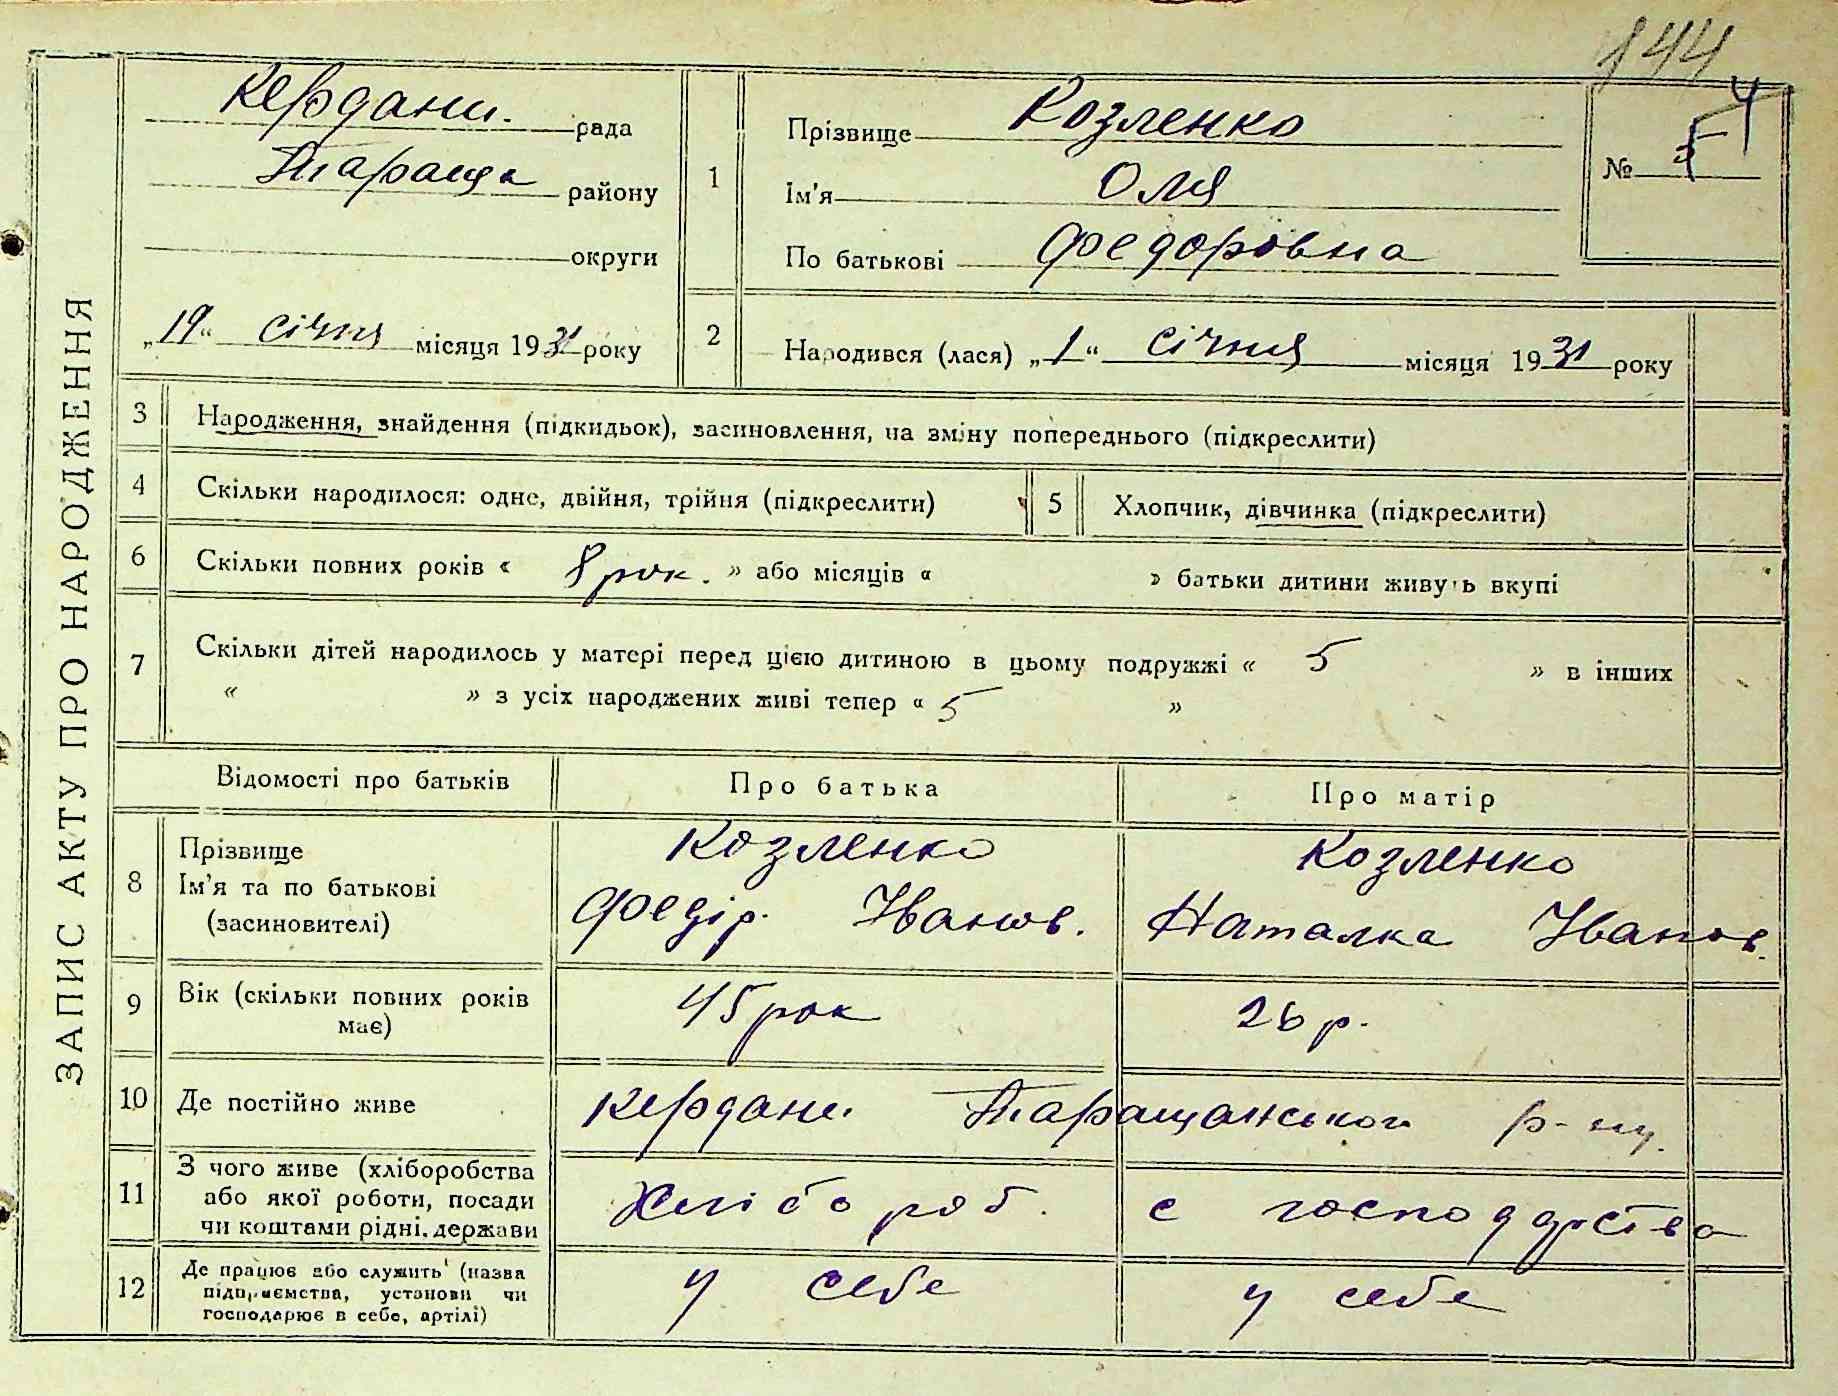 144
ЗАПИС АКТУ ПРО НАРОДЖЕННЯ
Кердани. рада
Тараща району
округи
„19“ січня місяця 1931 року
1
Прізвище Козленко
Ім'я Оля
По батькові Федоровна
№ 4
2
Народився (лася) „1“ січня місяця 1931 року
3 Народження, знайдення (підкидьок), засиновлення, на зміну попереднього (підкреслити)
4 Скільки народилося: одне, двійня, трійня (підкреслити)
5 Хлопчик, дівчинка (підкреслити)
6 Скільки повних років « 8 рок. » або місяців « » батьки дитини живуть вкупі
7 Скільки дітей народилось у матері перед цією дитиною в цьому подружжі « 5 » в інших
« » з усіх народжених живі тепер « 5 »
Відомості про батьків Про батька Про матір
8 Прізвище Козленко Козленко
Ім'я та по батькові Федір. Іванов. Наталка Іванов.
(засиновителі)
9 Вік (скільки повних років має) 45 рок 26 р.
10 Де постійно живе Кердани Таращанського р-ну.
11 З чого живе (хліборобства
або якої роботи, посади Хлібороб. с господарства
чи коштами рідні, держави
12 Де працює або служить (назва у себе у себе
підприємства, установи чи
господарює в себе, артілі)